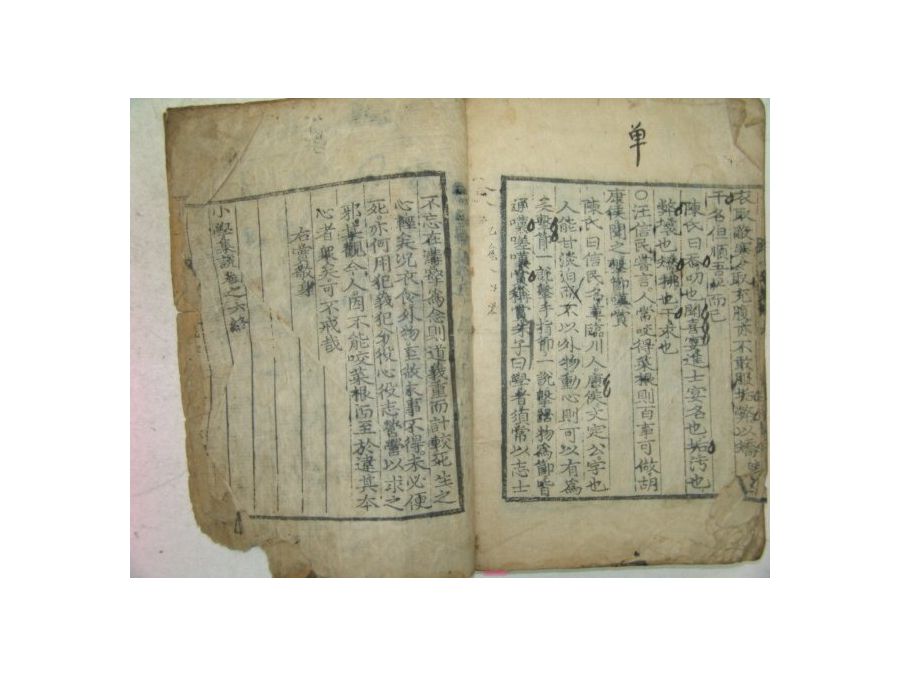 単
衣取蔽寒食取充腹亦不敢服垢弊以矯
干名但順吾性而已
陳氏曰忝叨也聞喜宴進士宴名也垢汚也
弊壞也矯拂也干求也
〇汪信民嘗言人常咬得菜根則百事可做胡
康侯聞之擊節嘆賞
陳氏曰信民名革臨川人康侯文定公字也
人能甘淡泊而不以外物動心則可以有爲
矣擊節一說擊手指節一說擊器物爲節皆
通嘆嗟嘆賞稱賞朱子曰學者須常以志士
不忘在溝壑爲念則道義重而計較死生之
心輕矣况衣食外物至微末事不得未必便
死亦何用犯義犯分役心役志營營以求之
耶某觀今人因不能咬菜根而至於違其本
心者衆矣可不戒哉
右實敬身
小學集說卷之六終